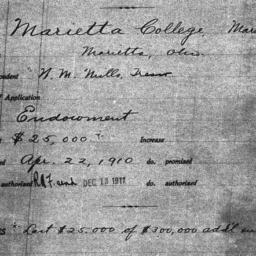 Marietta College, Mar
Marietta, Ohio
ndent " W. M. Mills, Treas
f Application
Endowment
$ 25,000 Increase
ed Apr. 22, 1910 do. promised
authorized R&F. and DEC 13 1911 do. authorized
S: Last $25.000 of $300,000 addl en